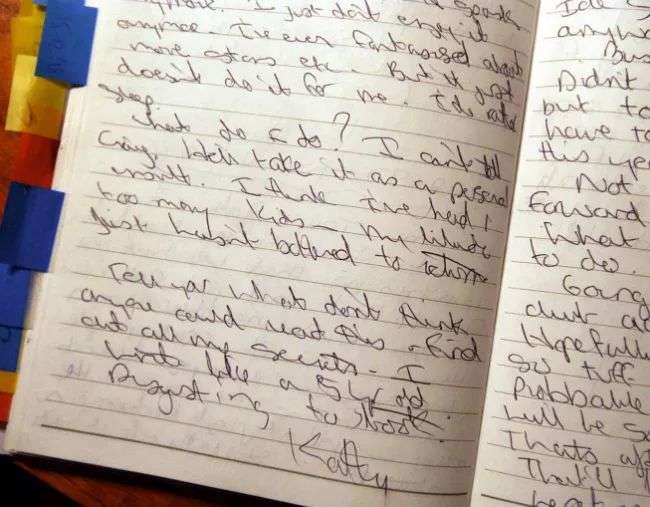 anymore. I just don't enjoy it
anymore. I've even fantasised about
more actors etc. But it just
doesn't do it for me. I'd rather
sleep.
What do I do? I can't tell
Craig. He'll take it as a personal
insult. I think I've had 1
too many kids - my libido
just hasn't bothered to return
Tell ya what don't think
anyone could read this & find
out all my secrets. I
write like a 5 yr old.
Disgusting to look.
Katty
Idle
anyway
Bus
Didn't
but to
have to
this ye
Not
forward
What
to do.
Going
club a
Hopefully
so tuff
Probable
hell be so
Thats aft
That'll